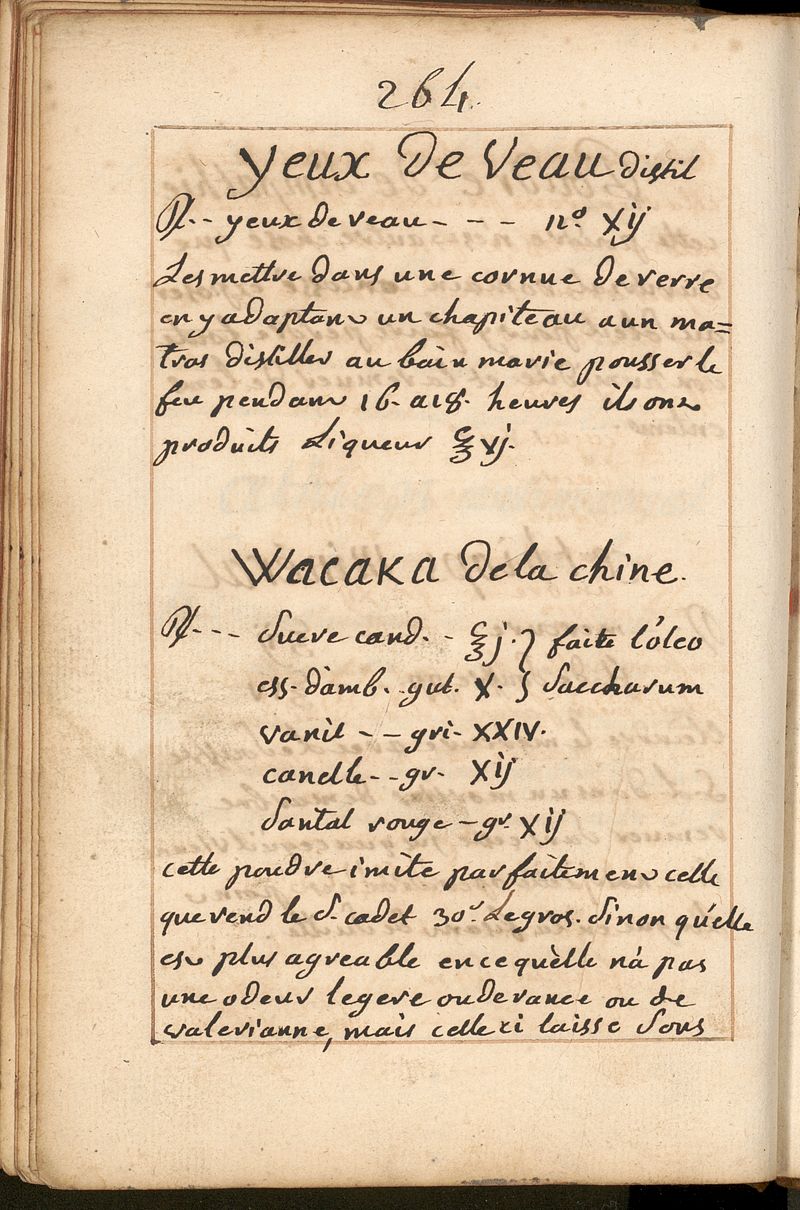 264.
Yeux De Veau distil
℞-- yeux de veau - - - nº Xij
Les mettre dans une cornue de verre
en y adaptant un chapiteau a un ma=
tras distiller au bain marie pousser le
feu pendant 16. a 18. heures ils ont
produits Liqueur ℥ vj.
Wacaka de la chine.
℞--- Sucre cand. - ℥ j. } faite l'òleo
ess. d'amb. gut. X. } Saccharum
vanil - - gri- XXIV.
canelle - - gr. Xij
Santal rouge - gr. Xij
cette poudre imite parfaitement celle
que vend le S. cadet 30s. Le gros. Sinon qu'elle
est plus agreable en ce qu'èlle n'à pas
une odeur legere ou de rance ou de
valerianne, mais celle ci laisse Sous